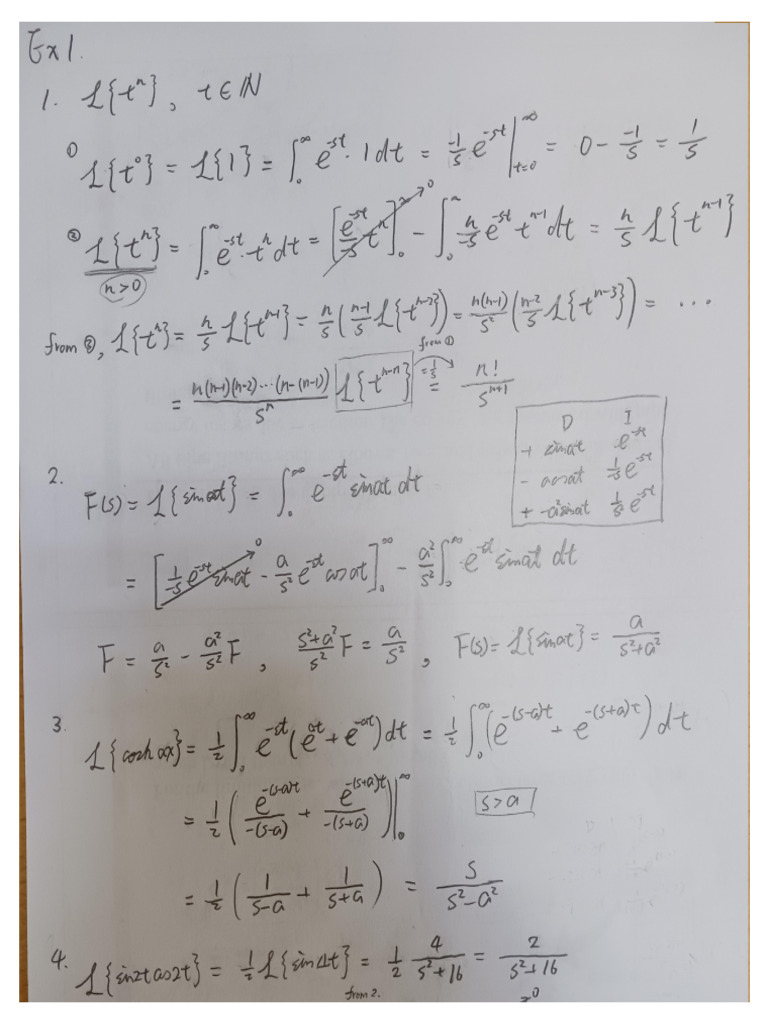 Ex 1.
1. ℒ{tⁿ}, t ∈ ℕ
① ℒ{t⁰} = ℒ{1} = ∫₀^∞ e^{-st} · 1 dt = -1/s e^{-st} |_{t=0}^∞ = 0 - -1/s = 1/s
② ℒ{tⁿ} = ∫₀^∞ e^{-st} · tⁿ dt = [e^{-st}/-s tⁿ]₀^∞ → 0 - ∫₀^∞ n/-s e^{-st} t^{n-1} dt = n/s ℒ{t^{n-1}}
n > 0
from ②, ℒ{tⁿ} = n/s ℒ{t^{n-1}} = n/s (n-1/s ℒ{t^{n-2}}) = n(n-1)/s² (n-2/s ℒ{t^{n-3}}) = ⋯
from ①
= n(n-1)(n-2)⋯(n-(n-1))/sⁿ ℒ{t^{n-n}} = 1/s = n!/s^{n+1}
D I
+ sin at e^{-st}
- a cos at 1/-s e^{-st}
+ -a² sin at 1/s² e^{-st}
2.
F(s) = ℒ{sin at} = ∫₀^∞ e^{-st} sin at dt
= [1/-s e^{-st} sin at → 0 - a/s² e^{-st} cos at]₀^∞ - a²/s² ∫₀^∞ e^{-st} sin at dt
F = a/s² - a²/s² F, s²+a²/s² F = a/s², F(s) = ℒ{sin at} = a/s²+a²
3.
ℒ{cosh ax} = 1/2 ∫₀^∞ e^{-st} (e^{at} + e^{-at}) dt = 1/2 ∫₀^∞ (e^{-(s-a)t} + e^{-(s+a)t}) dt
= 1/2 (e^{-(s-a)t}/-(s-a) + e^{-(s+a)t}/-(s+a)) |₀^∞ s > a
= 1/2 (1/s-a + 1/s+a) = s/s²-a²
4. ℒ{sin2t cos2t} = 1/2 ℒ{sin 4t} = 1/2 4/s²+16 = 2/s²+16
from 2.